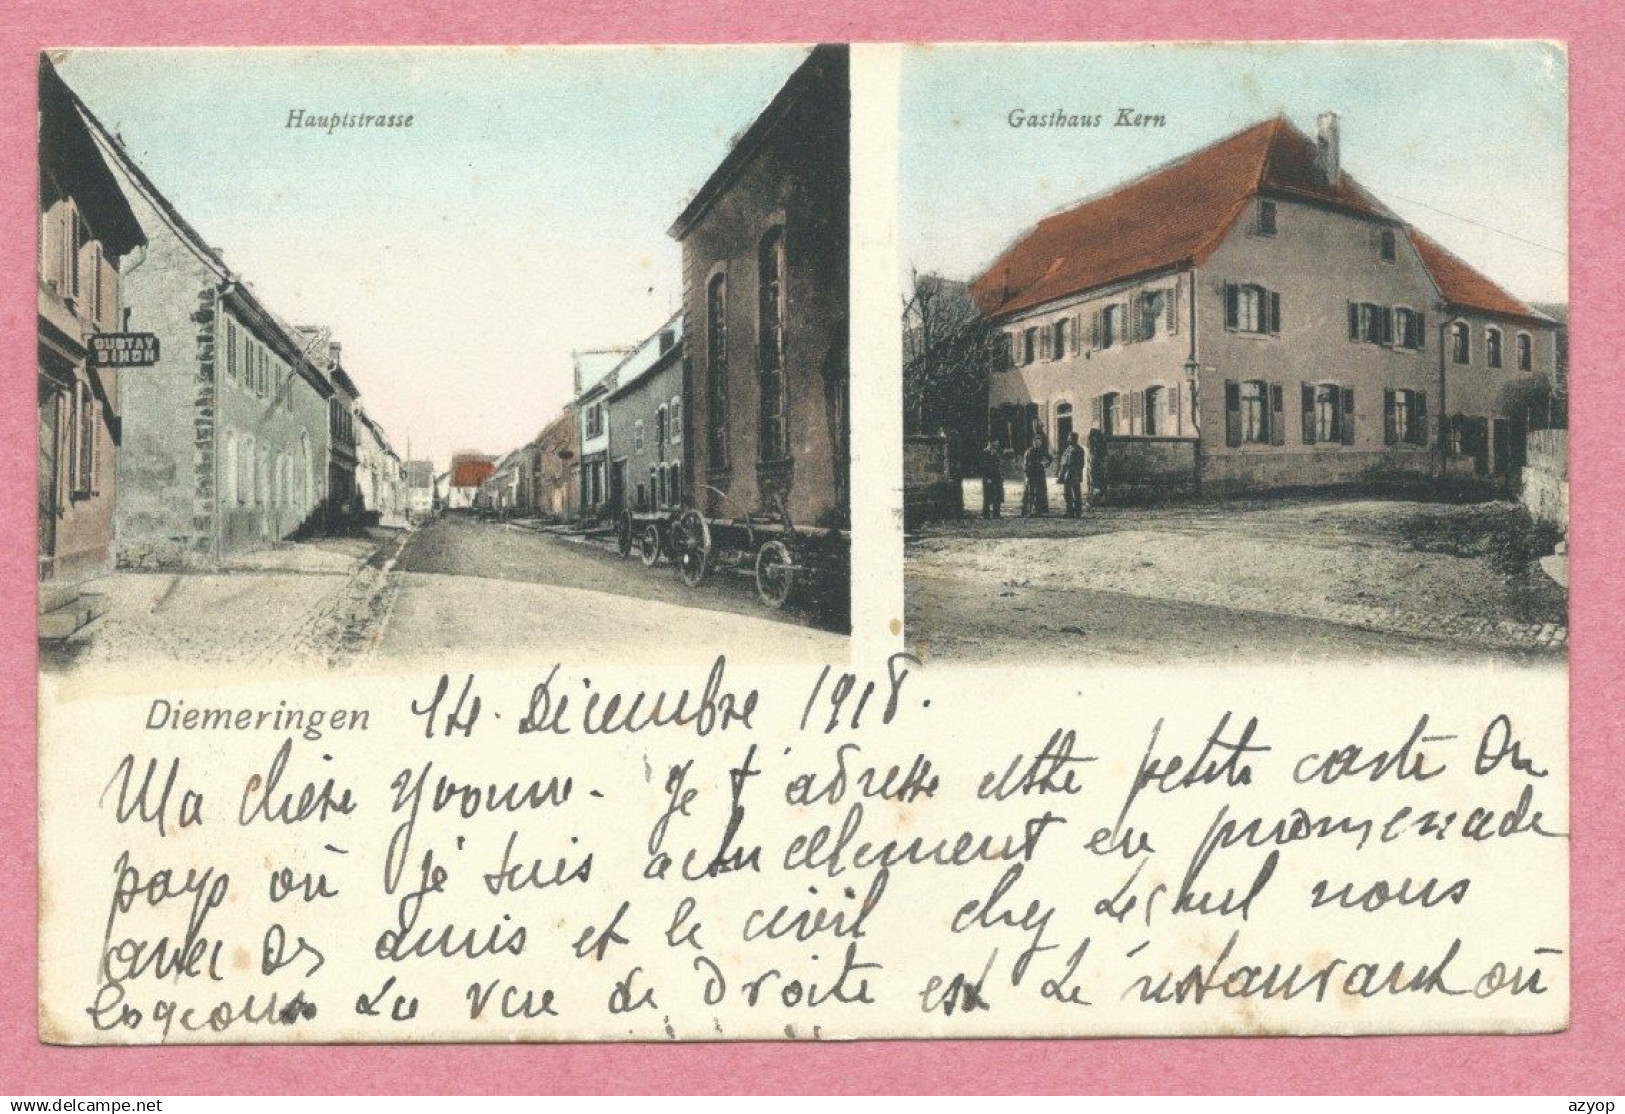 Hauptstrasse
Gasthaus Kern
GUSTAV
SIMON
Diemeringen
14. Décembre 1918.
Ma chère Yvonne. Je t'adresse cette petite carte du
pays où je suis actuellement en promenade
avec des amis et le civil chez lequel nous
logeons. La vue de droite est le restaurant où
delcampe.net
azyop